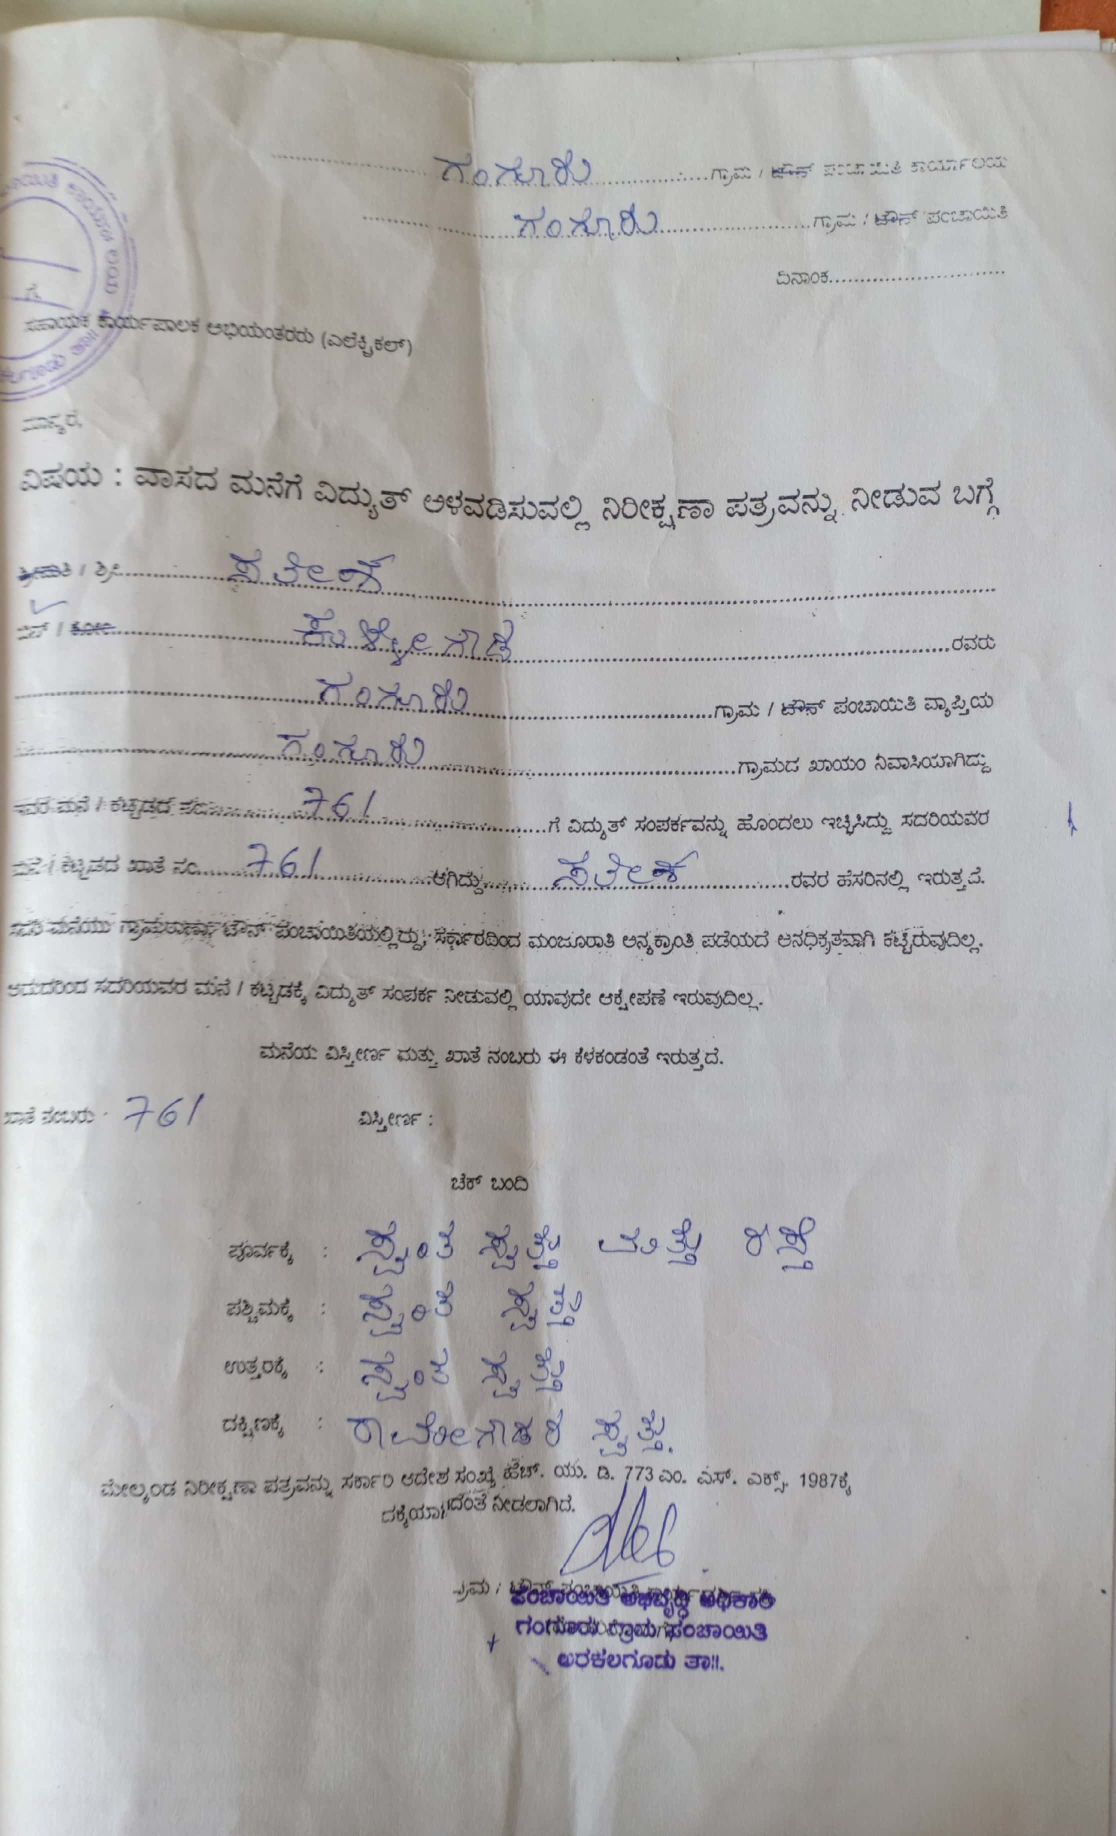 ಗಂಗೂರು ಗ್ರಾಮ / ಟೌನ್ ಪಂಚಾಯಿತಿ ಕಾರ್ಯಾಲಯ
ಗಂಗೂರು ಗ್ರಾಮ / ಟೌನ್ ಪಂಚಾಯಿತಿ
ದಿನಾಂಕ
ಗೆ
ಸಹಾಯಕ ಕಾರ್ಯಪಾಲಕ ಅಭಿಯಂತರರು (ಎಲೆಕ್ಟ್ರಿಕಲ್)
ಮಾನ್ಯರೆ,
ವಿಷಯ : ವಾಸದ ಮನೆಗೆ ವಿದ್ಯುತ್ ಅಳವಡಿಸುವಲ್ಲಿ ನಿರೀಕ್ಷಣಾ ಪತ್ರವನ್ನು ನೀಡುವ ಬಗ್ಗೆ
ಶ್ರೀಮತಿ / ಶ್ರೀ ಸತೀಶ
ಬಿನ್ / ಕೋಂ ಕುಳ್ಳೇಗೌಡ ರವರು
ಗಂಗೂರು ಗ್ರಾಮ / ಟೌನ್ ಪಂಚಾಯಿತಿ ವ್ಯಾಪ್ತಿಯ
ಗಂಗೂರು ಗ್ರಾಮದ ಖಾಯಂ ನಿವಾಸಿಯಾಗಿದ್ದು
ಇವರ ಮನೆ / ಕಟ್ಟಡದ ನಂ 761 ಗೆ ವಿದ್ಯುತ್ ಸಂಪರ್ಕವನ್ನು ಹೊಂದಲು ಇಚ್ಛಿಸಿದ್ದು ಸದರಿಯವರ
ಮನೆ / ಕಟ್ಟಡದ ಖಾತೆ ನಂ 761 ಆಗಿದ್ದು, ಸತೀಶ ರವರ ಹೆಸರಿನಲ್ಲಿ ಇರುತ್ತದೆ.
ಸದರಿ ಮನೆಯು ಗ್ರಾಮಠಾಣಾ/ ಟೌನ್ ಪಂಚಾಯಿತಿಯಲ್ಲಿದ್ದು, ಸರ್ಕಾರದಿಂದ ಮಂಜೂರಾತಿ ಅನ್ಯಕ್ರಾಂತಿ ಪಡೆಯದೆ ಅನಧಿಕೃತವಾಗಿ ಕಟ್ಟಿರುವುದಿಲ್ಲ.
ಆದುದರಿಂದ ಸದರಿಯವರ ಮನೆ / ಕಟ್ಟಡಕ್ಕೆ ವಿದ್ಯುತ್ ಸಂಪರ್ಕ ನೀಡುವಲ್ಲಿ ಯಾವುದೇ ಆಕ್ಷೇಪಣೆ ಇರುವುದಿಲ್ಲ.
ಮನೆಯ ವಿಸ್ತೀರ್ಣ ಮತ್ತು ಖಾತೆ ನಂಬರು ಈ ಕೆಳಕಂಡಂತೆ ಇರುತ್ತದೆ.
ಖಾತೆ ನಂಬರು : 761 ವಿಸ್ತೀರ್ಣ :
ಚೆಕ್ ಬಂದಿ
ಪೂರ್ವಕ್ಕೆ : ಸ್ವಂತ ಸ್ವತ್ತು ಮತ್ತು ರಸ್ತೆ
ಪಶ್ಚಿಮಕ್ಕೆ : ಸ್ವಂತ ಸ್ವತ್ತು
ಉತ್ತರಕ್ಕೆ : ಸ್ವಂತ ಸ್ವತ್ತು
ದಕ್ಷಿಣಕ್ಕೆ : ರಾಮೇಗೌಡರ ಸ್ವತ್ತು
ಮೇಲ್ಕಂಡ ನಿರೀಕ್ಷಣಾ ಪತ್ರವನ್ನು ಸರ್ಕಾರಿ ಆದೇಶ ಸಂಖ್ಯೆ ಹೆಚ್. ಯು. ಡಿ. 773 ಎಂ. ಎಸ್. ಎಕ್ಸ್. 1987ಕ್ಕೆ
ನೀಡಲಾಗಿದೆ.
ಪಂಚಾಯಿತಿ ಅಭಿವೃದ್ಧಿ ಅಧಿಕಾರಿ
ಗಂಗೂರು ಗ್ರಾಮ ಪಂಚಾಯಿತಿ
ಅರಕಲಗೂಡು ತಾ॥.